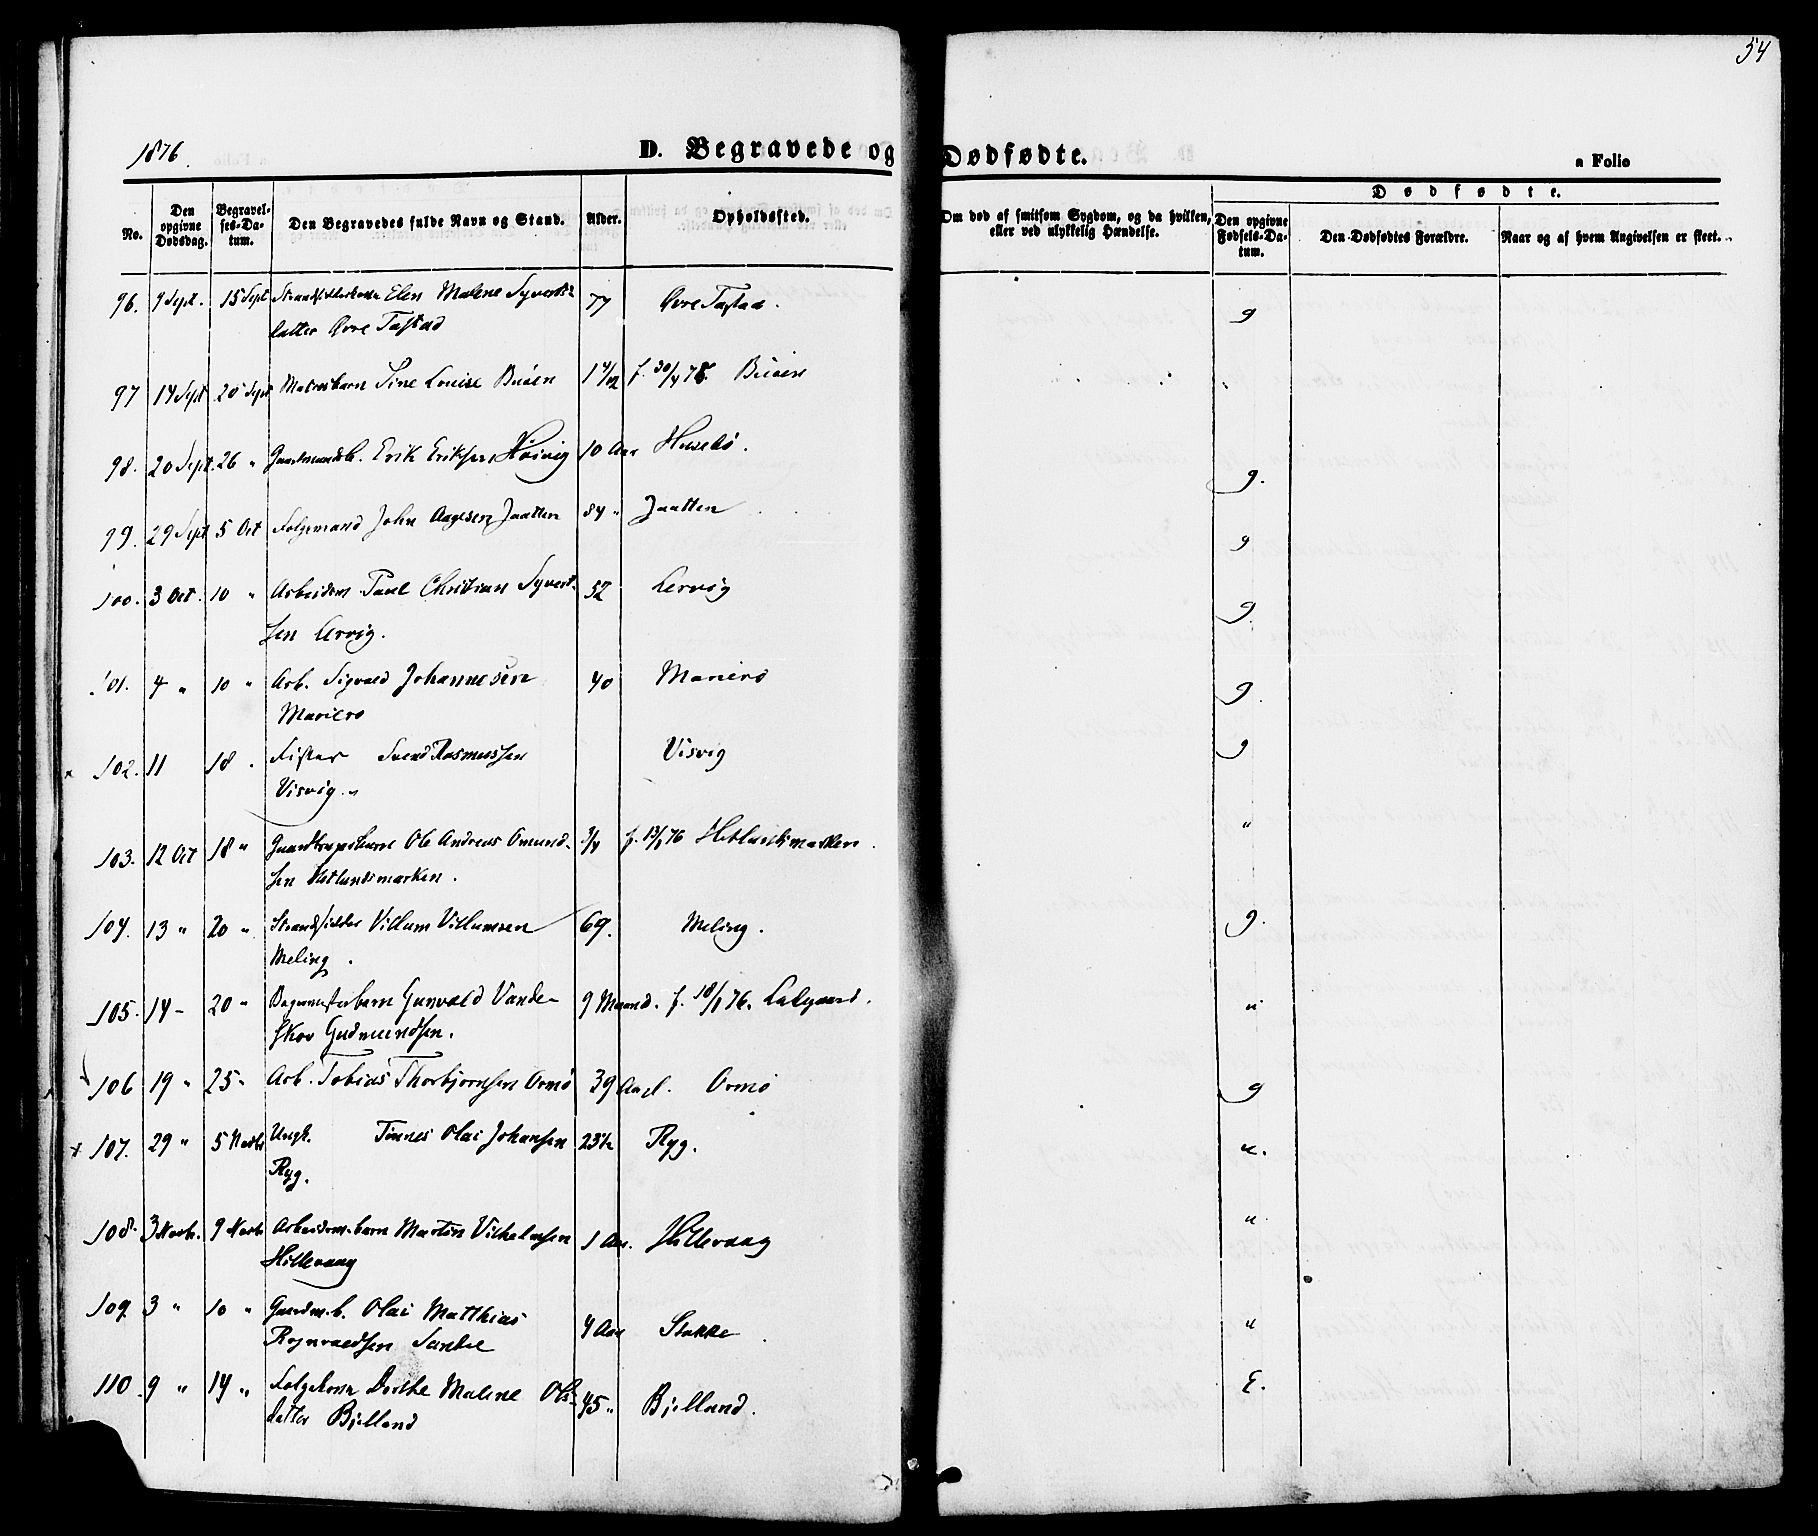 54
1876.
D. Begravede og Dødfødte.
a Folio
No.
Den opgivne Dødsdag.
Begravelses-Datum.
Den Begravedes fulde Navn og Stand.
Alder.
Opholdssted.
Om død af smitsom Sygdom, og da hvilken, eller ved ulykkelig Hændelse.
Dødfødte.
Den opgivne Fødsels-Datum.
Den Dødfødtes Forældre.
Naar og af hvem Angivelsen er skeet.
96. 9 Sept. 15 Sept Elen Malene Syverts- 77 Øvre Tastad. g
datter Øvre Tastad
97 14 Sept 20 Sept Sine Louise Buøen 1 4/12 f. 30/4 75. Buøen
98. 20 Sept. 26 " Gaardmandsb. Erik Eriksen Høivig 10 Aar Husebø. g.
99. 29 Sept 5 Oct Folgemand John Aagesen Jaatten 84 " Jaatten g
100. 3 Oct. 10 " Arbeidsm. Paul Christian Syvert- 52 Lervig g.
sen Lervig.
101. 4 " 10 " Arb. Sigvald Johannesen 40 Mariero g.
Mariero
102. 11 18 . Fisker Svend Rasmussen Visvig g
Visvig. "
103. 12 Oct 18 " Ole Andreas Omund- 3/4 f. 13/1 76 Hetlandsmarken. "
sen Hetlandsmarken.
104. 13 " 20 " Strandsidder Villum Villumsen 69. Meling. g.
Meling.
105. 14 - 20 " Gunvald Vande- 9 Maand. f. 18/1 76. Ladegaard. u
skov Gudmundsen.
106 19 " 25 " Arb. Tobias Thorbjørnsen Ormø 39 Aar Ormø g
107. 29 " 5 Novbr Ungk. Tønnes Olai Johansen 23 1/2 Ryg. u.
Ryg.
108. 3 Novb. 9 Novb. Arbeidsm. barn Martin Vilhelmsen 1 Aar. Hillevaag u.
Hillevaag
109. 3 " 10 " Gaardm. b. Olai Matthias 4 Aar Stokke u
Rognvaldsen
110. 9 " 14 " Folgekone Dorthe Malene Ols- 45 " Bjelland. E.
datter Bjelland